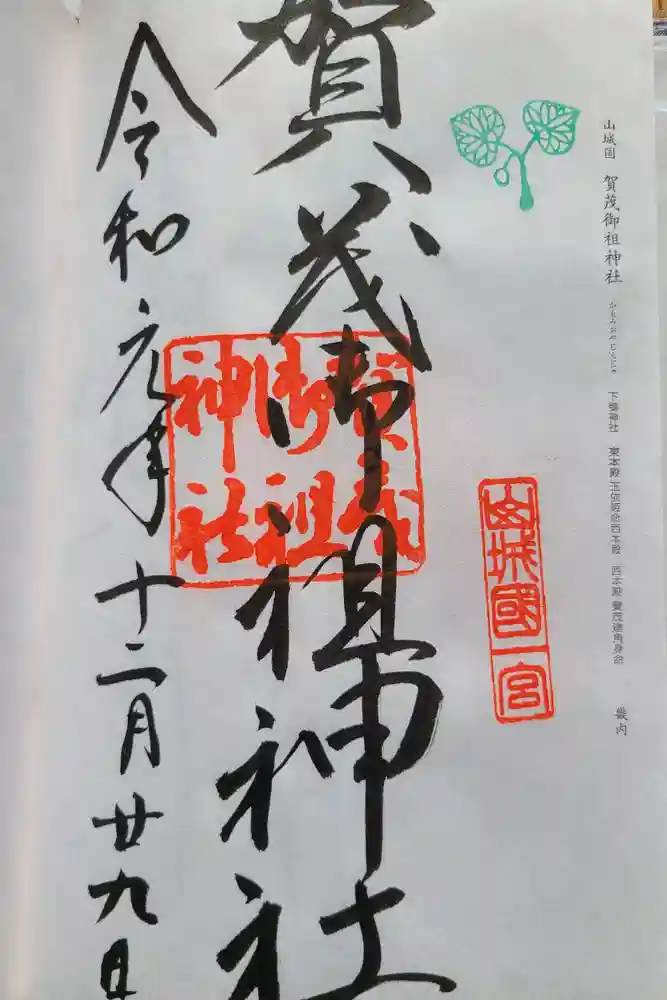 山城国 賀茂御祖神社 かもみおやじんじゃ 下鴨神社 東本殿 玉依姫命 西本殿 西本殿 賀茂建角身命 畿内
山城國一宮
賀茂御祖神社
賀茂
御祖
神社
令和元年十二月廿九日